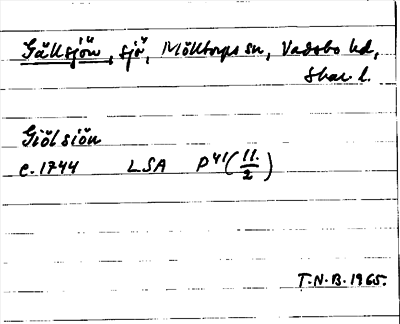 Gällsjön, sjö, Mölltorps sn, Vadsbo hd,
Skar l.
Giölsiön
c. 1744 LSA P41 (11./2)
T.N.B. 1965.